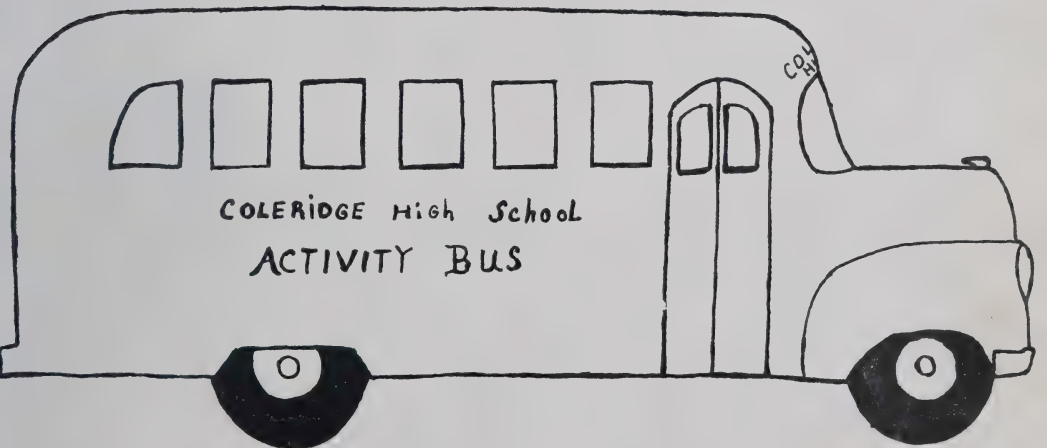 COLERIDGE HiGh SchooL
ACTIVITY BUS